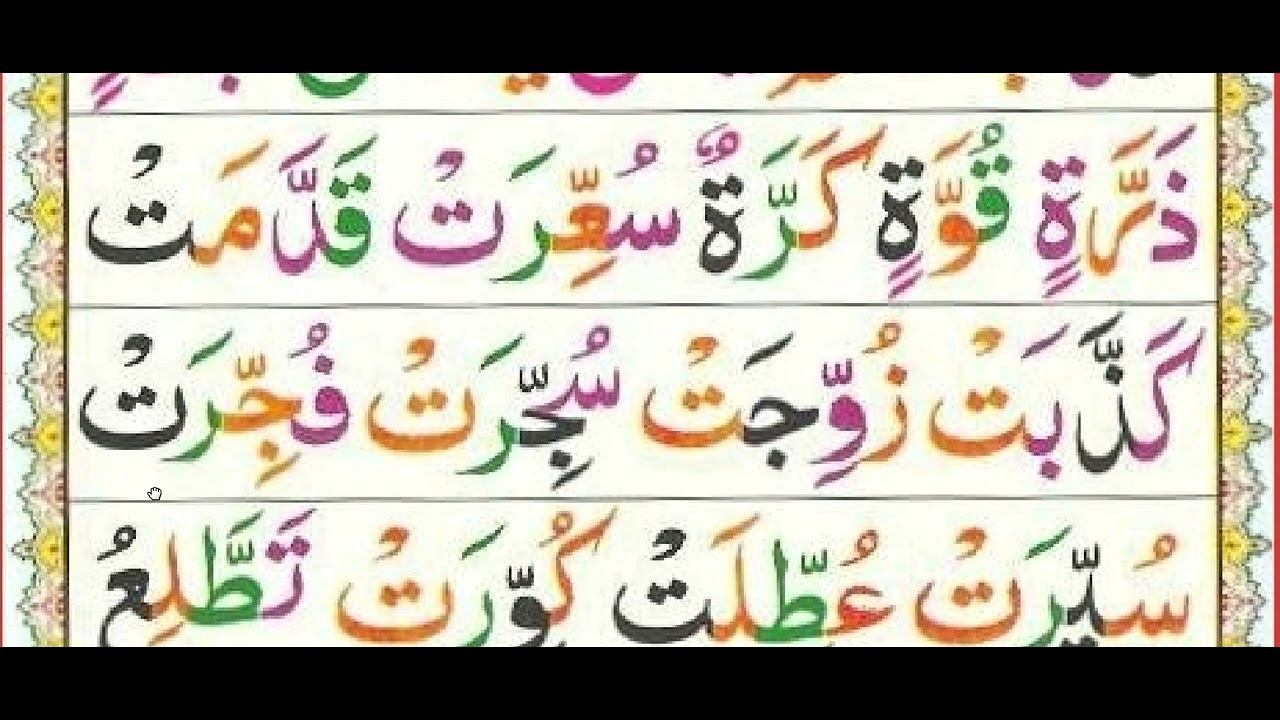 ذَرَّةٍ قُوَّةٍ كَرَّةٌ سُعِّرَتْ قَدَّمَتْ
كَذَّبَتْ زُوِّجَتْ سُجِّرَتْ فُجِّرَتْ
سُيِّرَتْ عُطِّلَتْ كُوِّرَتْ تَطَّلِعُ